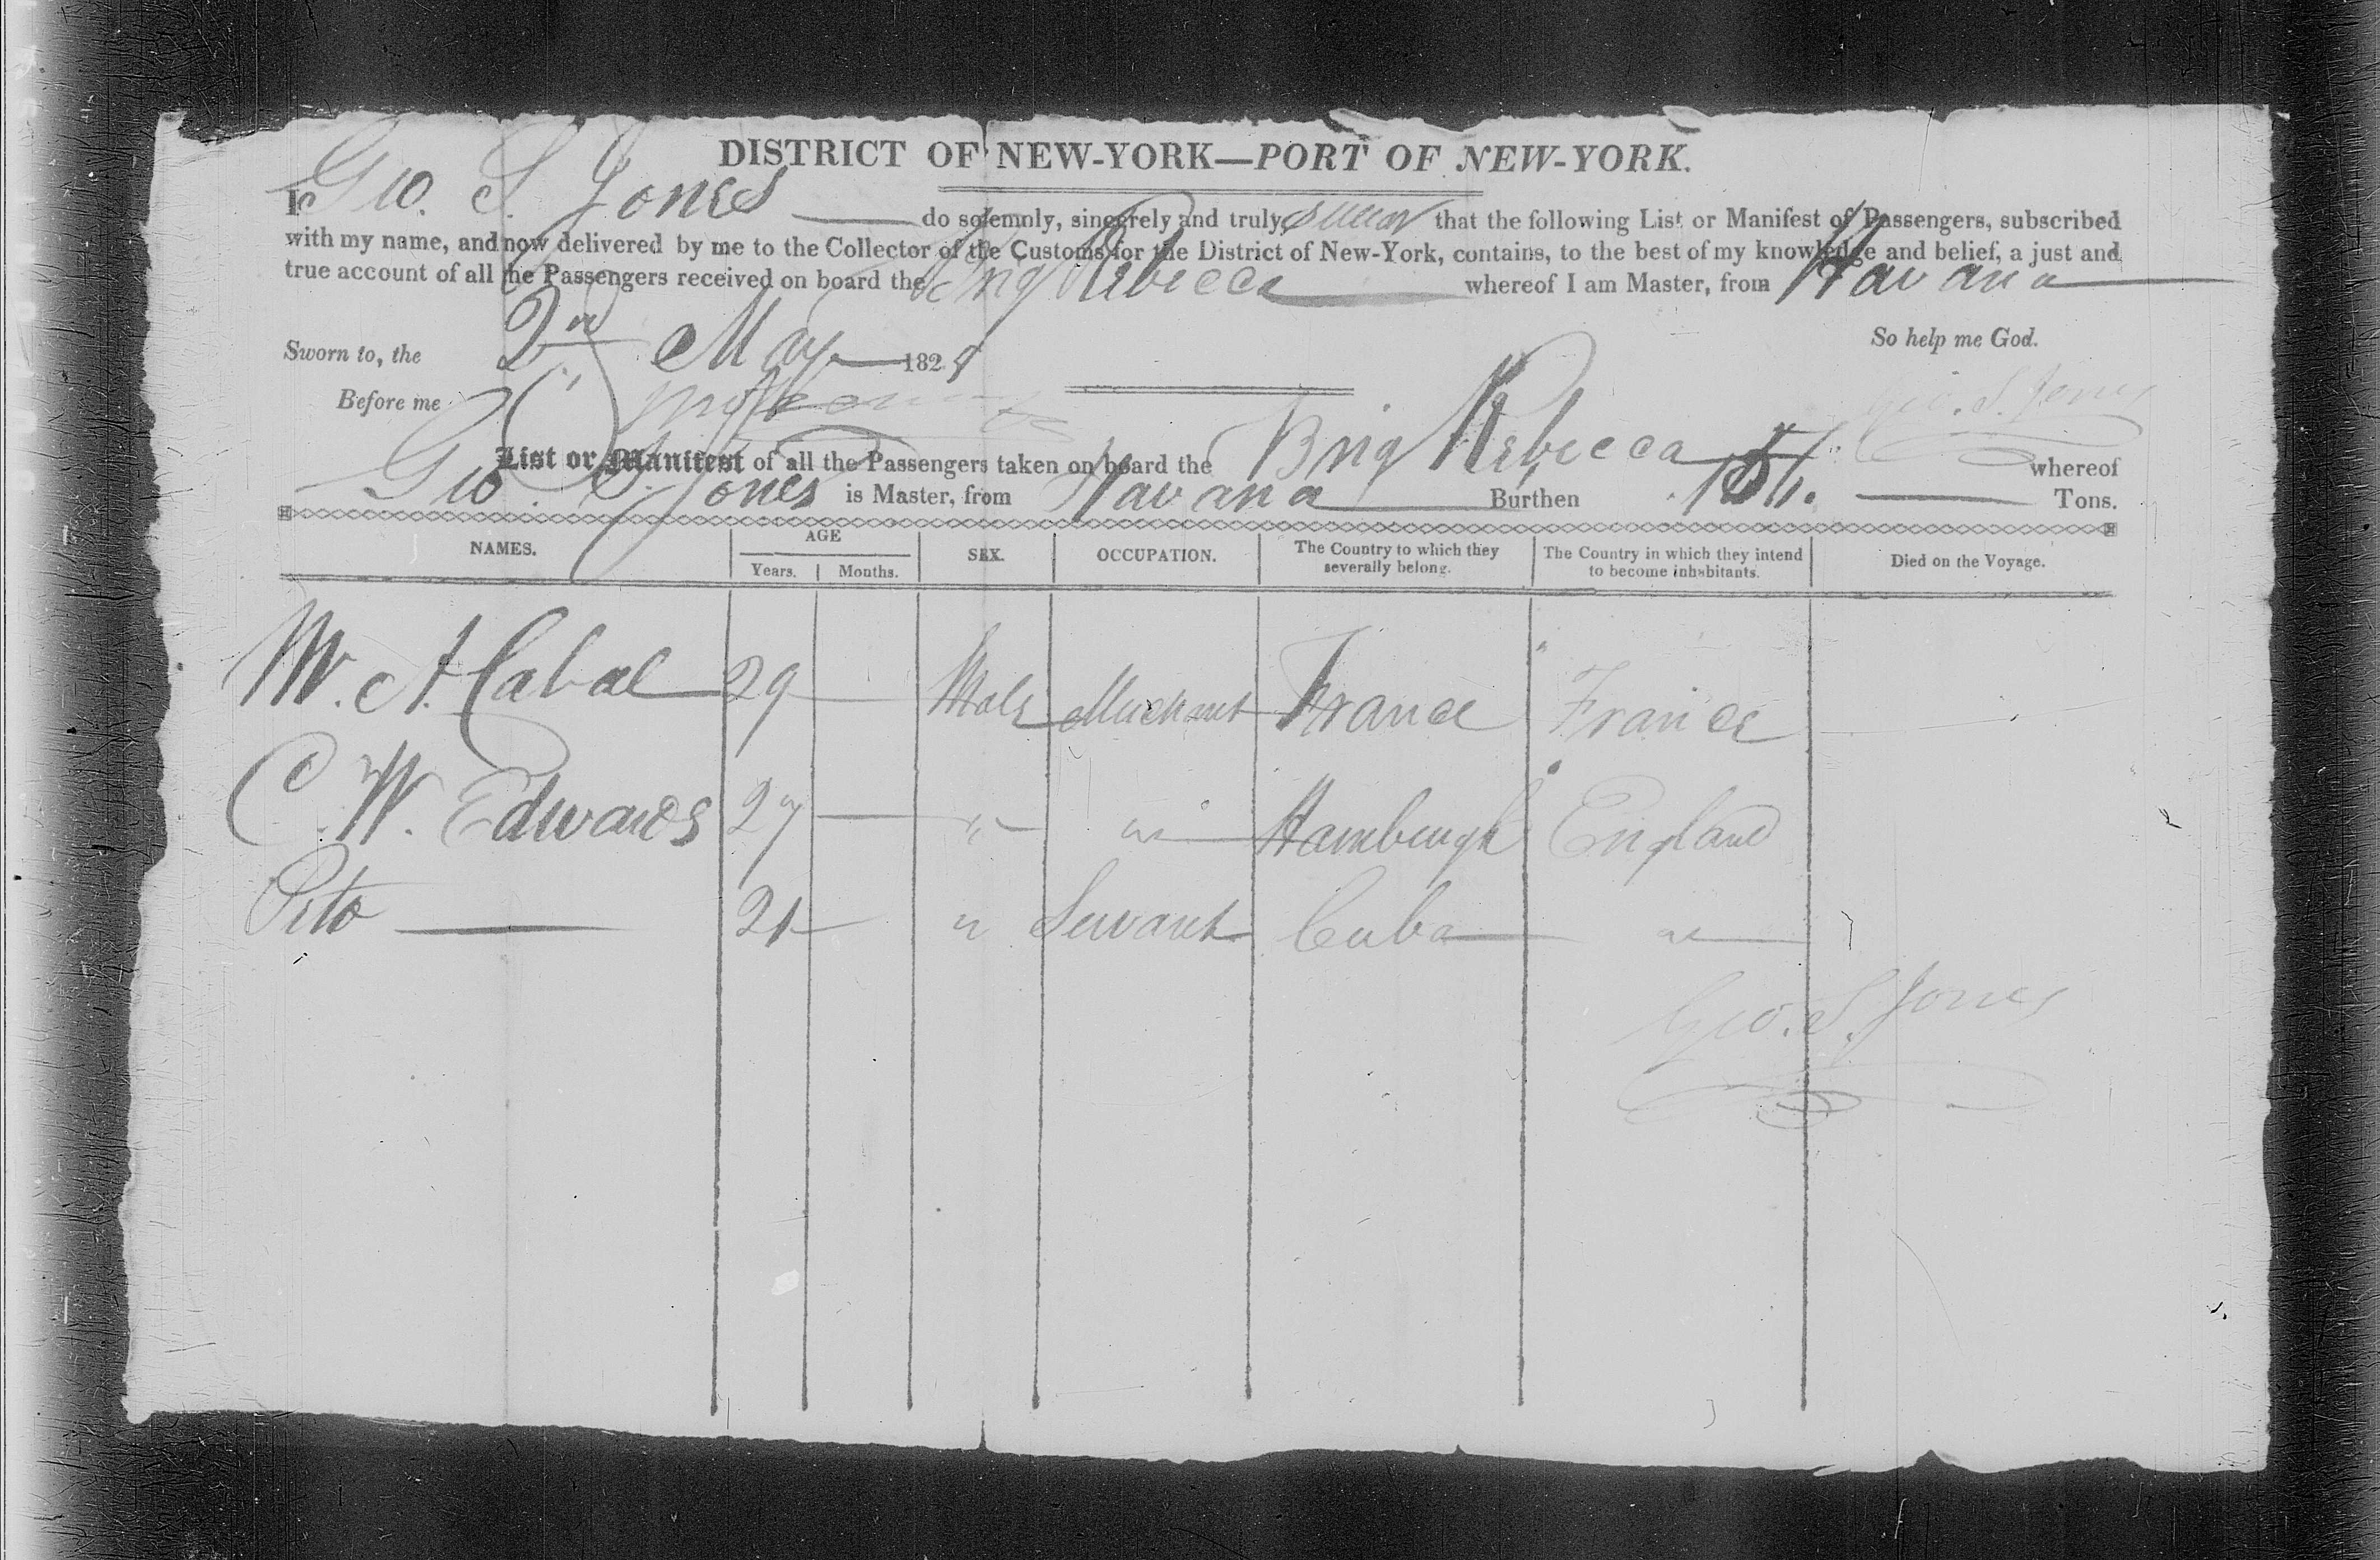 DISTRICT OF NEW-YORK—PORT OF NEW-YORK.
I, Geo. S. Jones do solemnly, sincerely and truly swear that the following List or Manifest of Passengers, subscribed
with my name, and now delivered by me to the Collector of the Customs for the District of New-York, contains, to the best of my knowledge and belief, a just and
true account of all the Passengers received on board the Brig Rebecca whereof I am Master, from Havana
So help me God.
Sworn to, the 2nd May 182
Before me
Geo. S. Jones
List or Manifest of all the Passengers taken on board the Brig Rebecca whereof
Geo. S. Jones is Master, from Havana Burthen Tons.
NAMES. AGE SEX. OCCUPATION. The Country to which they severally belong. The Country in which they intend to become inhabitants. Died on the Voyage.
Years. Months.
M. A. Cabal 29 — Male Merchant France France
C. W. Edwards 27 — " " Hamburgh England
Pito — 21 — " Servant Cuba "
Geo. S. Jones